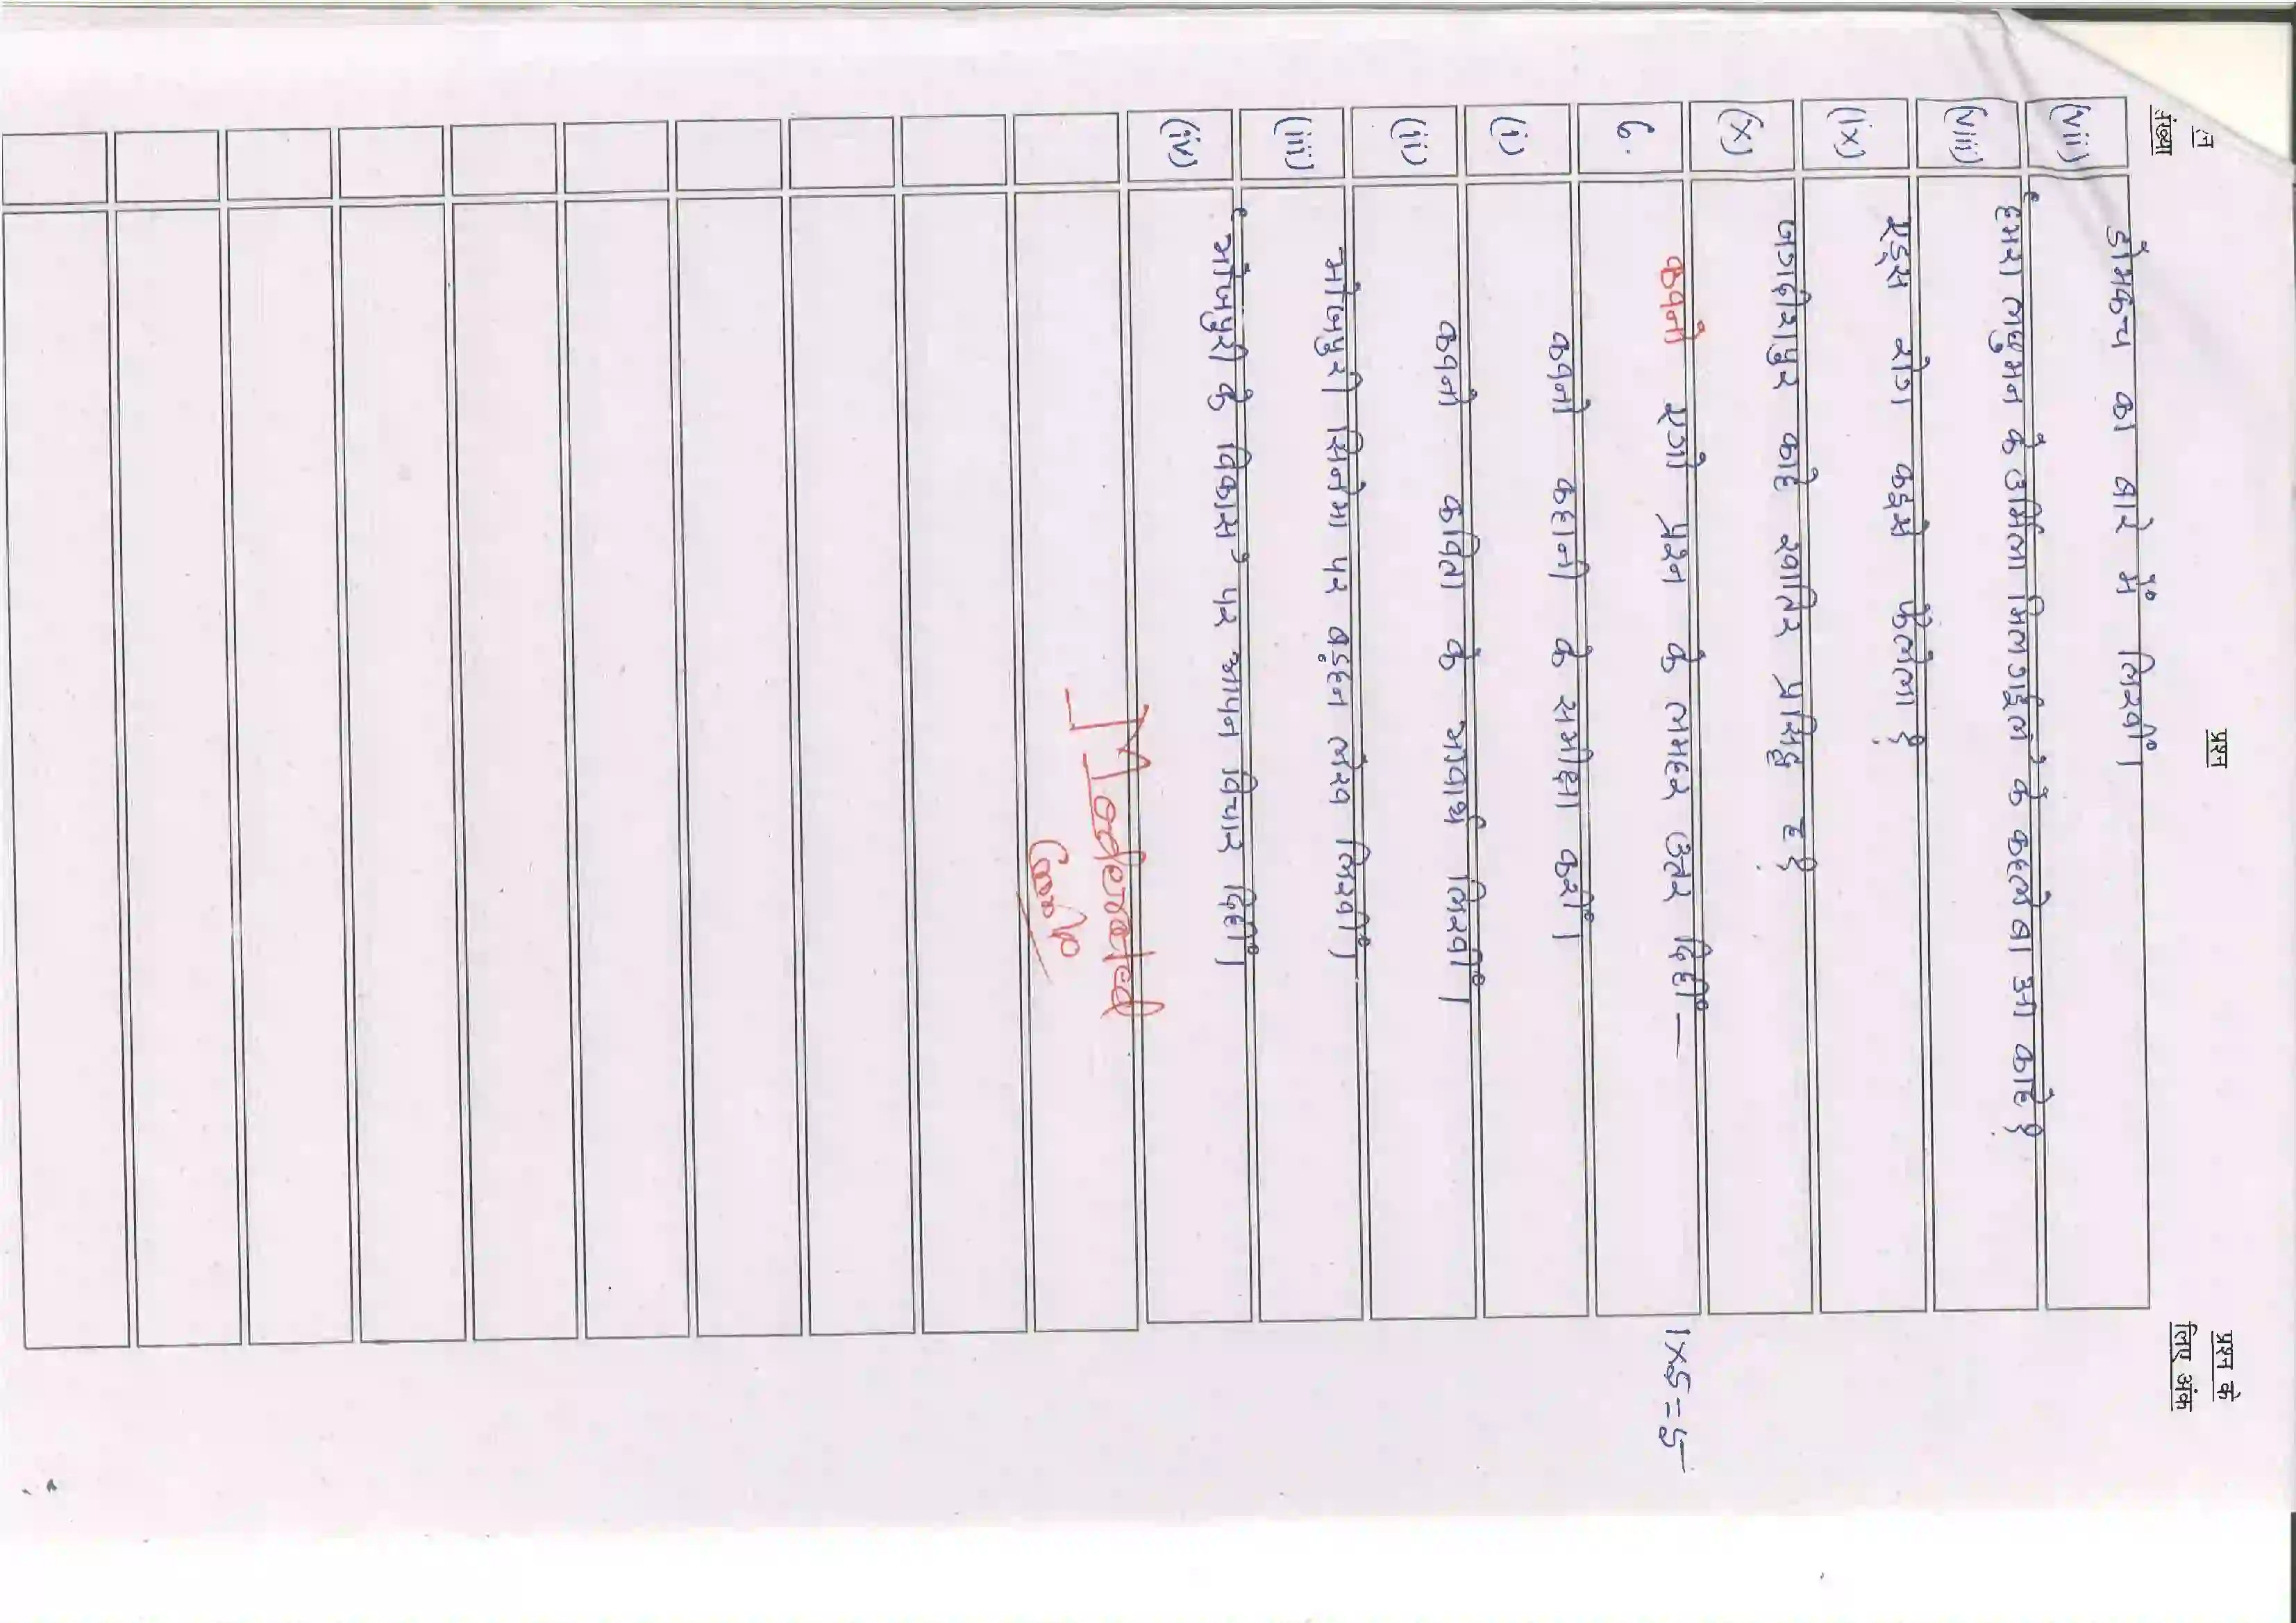 संख्या
प्रश्न
प्रश्न के
लिए अंक
(vii) डोमकच का बारे में लिखीं।
(viii) 'हमरा लछुमन के उर्मिला मिलगईले' के कहले बा आ काहे?
(ix) एड्स रोग कइसे फैलेला?
(x) जगदीशपुर काहे खातिर प्रसिद्ध ह?
6. कवनो एगो प्रश्न के लमहर उतर दिहीं — 1×5=5
(i) कवनो कहानी के समीक्षा करीं।
(ii) कवनो कविता के भावार्थ लिखीं।
(iii) भोजपुरी सिनेमा पर बड़हन लेख लिखीं।
(iv) 'भोजपुरी के विकास' पर आपन विचार दिहीं।